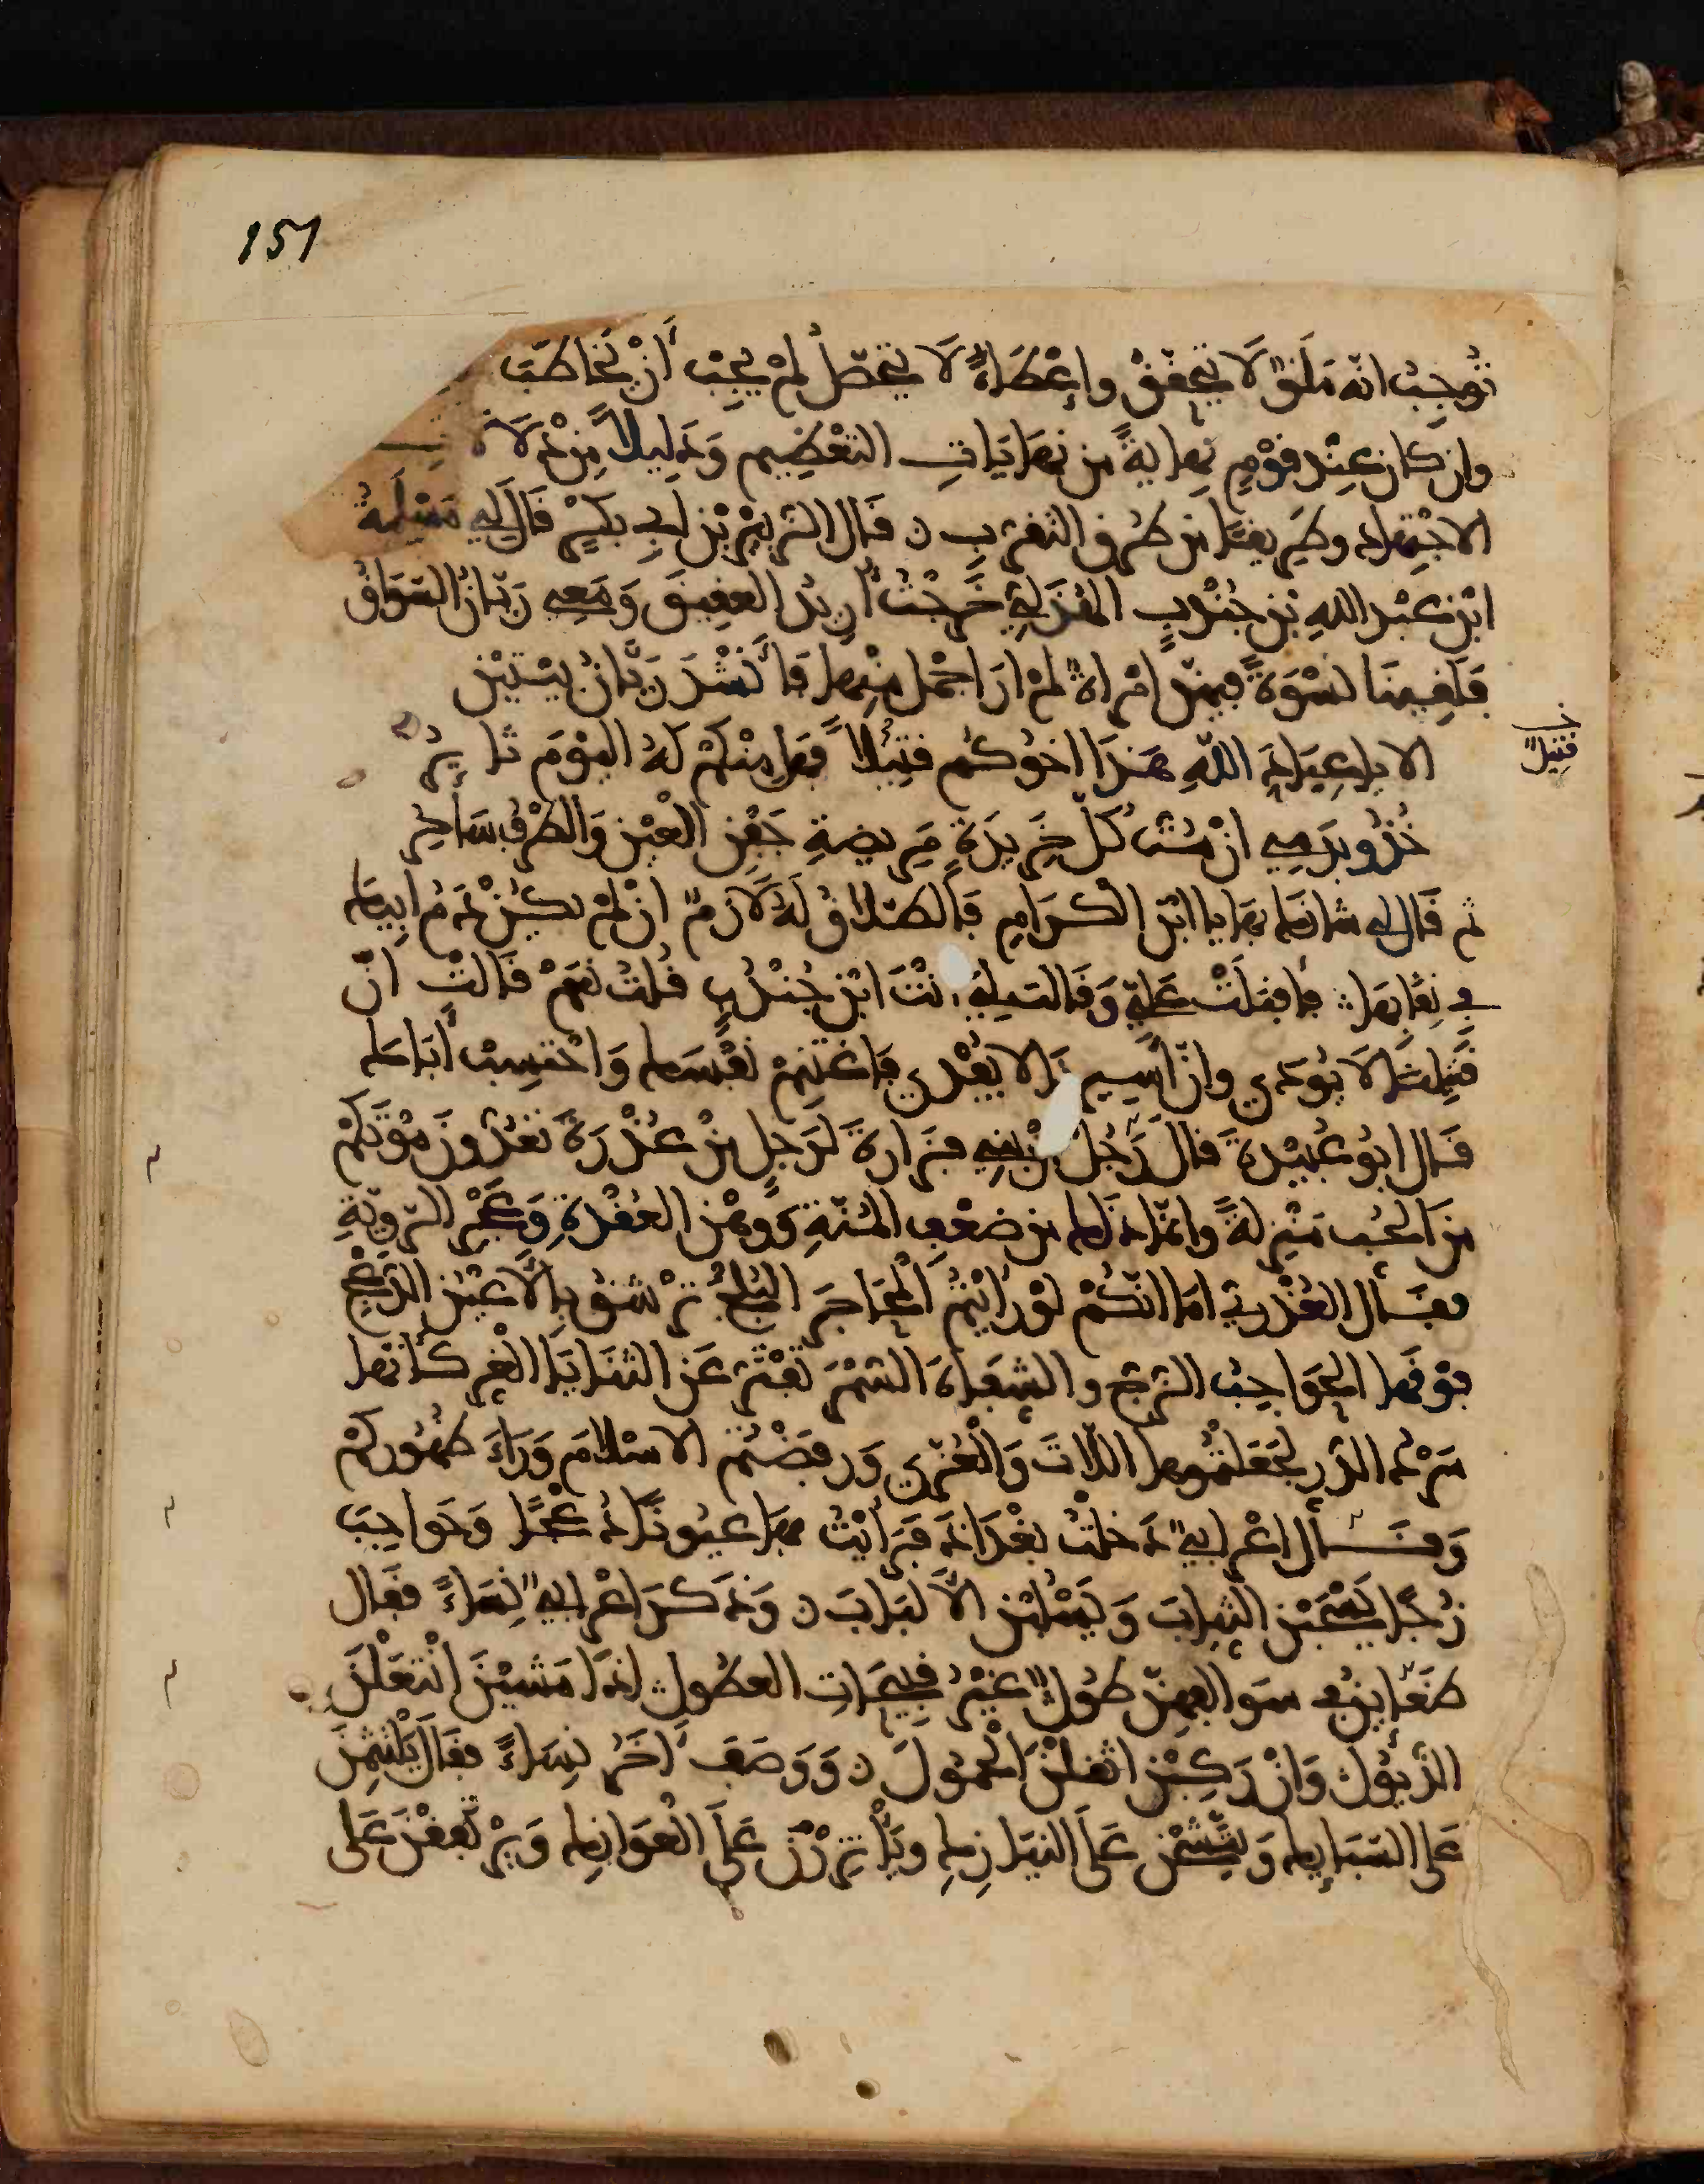 151
تُوجِبُ انّه مَلَقٌ لَا يتحقّقُ وإعْطَاءٌ لَا يتحصّلُ لمْ يجِبْ أنْ يُخَاطَبَ
وان كان عِنْد قوْمٍ نهايةً من نهايَاتِ التعْظِيمِ وَدَلِيلاً مِنْ دَلَا
الاجْتِهادِ وطَرِيقًا من طرُقِ التقرّبِ ه قال الزّبيْرُ بْن ابِي بكْرٍ قالَ لِي مَسْلَمةُ
ابْن عبْد اللهِ بْنِ جنْدُبٍ الهُذَلِيّ خَرجْتُ أُرِيدُ العقِيقَ وَمَعِي رَيّانُ السّوَاقُ
فلقِينَا نسْوَةً فيهنّ امْرأةٌ لمْ ارَ اجْمل منْها فأنْشدَ رَيّانُ بيْتيْن
الا يا عِبَادَ اللّهِ هَذَا اخوُكُم قتِيلًا فهَل منْكمْ لَهُ اليوْمَ ثايِرُ
خ قتيلٌ
خُذُو بدَمِي انْ مُتُّ كلَّ خَرِيدَةٍ مَرِيضةِ جَفْنِ الْعيْنِ وَالطرْفُ سَاحِرُ
ثم قال لِي شانَك بها يا ابْن الكرَامِ فالطلاقُ لهُ لَازمٌ انْ لمْ يكُنْ دَمُ ابِيك
في نِقَابِهَا فاقبلَتْ عليّ وَقالت لِي أنْتَ ابْن جُنْدُبٍ قلتُ نعَمْ قالتْ انّ
قَتِيلنَا لَا يُودَى وانّ اسِيرنَا لا يُفْدى فاغْتنِمْ نفْسَك وَاحْتسِبْ أبَاك
قال ابُو عُبيْدةَ قالَ رَجُلٌ مِنْ بنِي فزارةَ لرَجلٍ منْ عُذْرَةَ تعُدّونَ موْتكمْ
من الحُب مَزِيةً وانّما ذَلك من ضعْفِ المُنّةِ ووَهْنِ العُقْدةِ وَعجْزِ الرّوِيّةِ
فقال العُذْريّ امَا انّكُمْ لوْ رَأيْتُمُ الْمَحَاجِرَ البُلْجَ ترْشقُ بِالأعْيُنِ الدّعْجِ
فوْقهَا الحوَاجِبُ الزّجّ والشِفَاهَ السّمْرَ تفْترّ عَن الثنَايَا الغُر كأنّها
سَرْدُ الدُّر لجعَلْتُمُوها اللّاتَ وَالْعُزّى وَرفَضْتُم الاسْلَامَ وَرَاءَ ظهُوركُمْ
وَقَال اعْرابِيٌّ دَخلْتُ بغْدَاذَ فرَأيْتُ بها عيُونًا دُعْجًا وَحَواجِبَ
زُجًّا يَسْحَبْنَ الثِيابَ وَيَسْلُبْنَ الألبَابَ ه وَذَكَرَ اعْرابِيٌّ نِسَاءً فقَال
ظعَايِنُ فِي سَوَالِفِهِنّ طُولٌ غيْرُ قبِيحَاتِ العطُولِ اذَا مَشيْنَ انْتعَلْنَ
الذّيُولَ وَانْ رَكِبْنَ اثقلْنَ الْحمُولَ ه وَوَصَفَ آخرُ نِسَاءً فقَال يَلْتثِمْنَ
عَلى السّبَايِكِ وَيتّشِحْنَ عَلَى النيَازِكِ ويَأْتزِرْنَ عَلَى العَوَانِكِ وَيرْتفِقْنَ عَلى